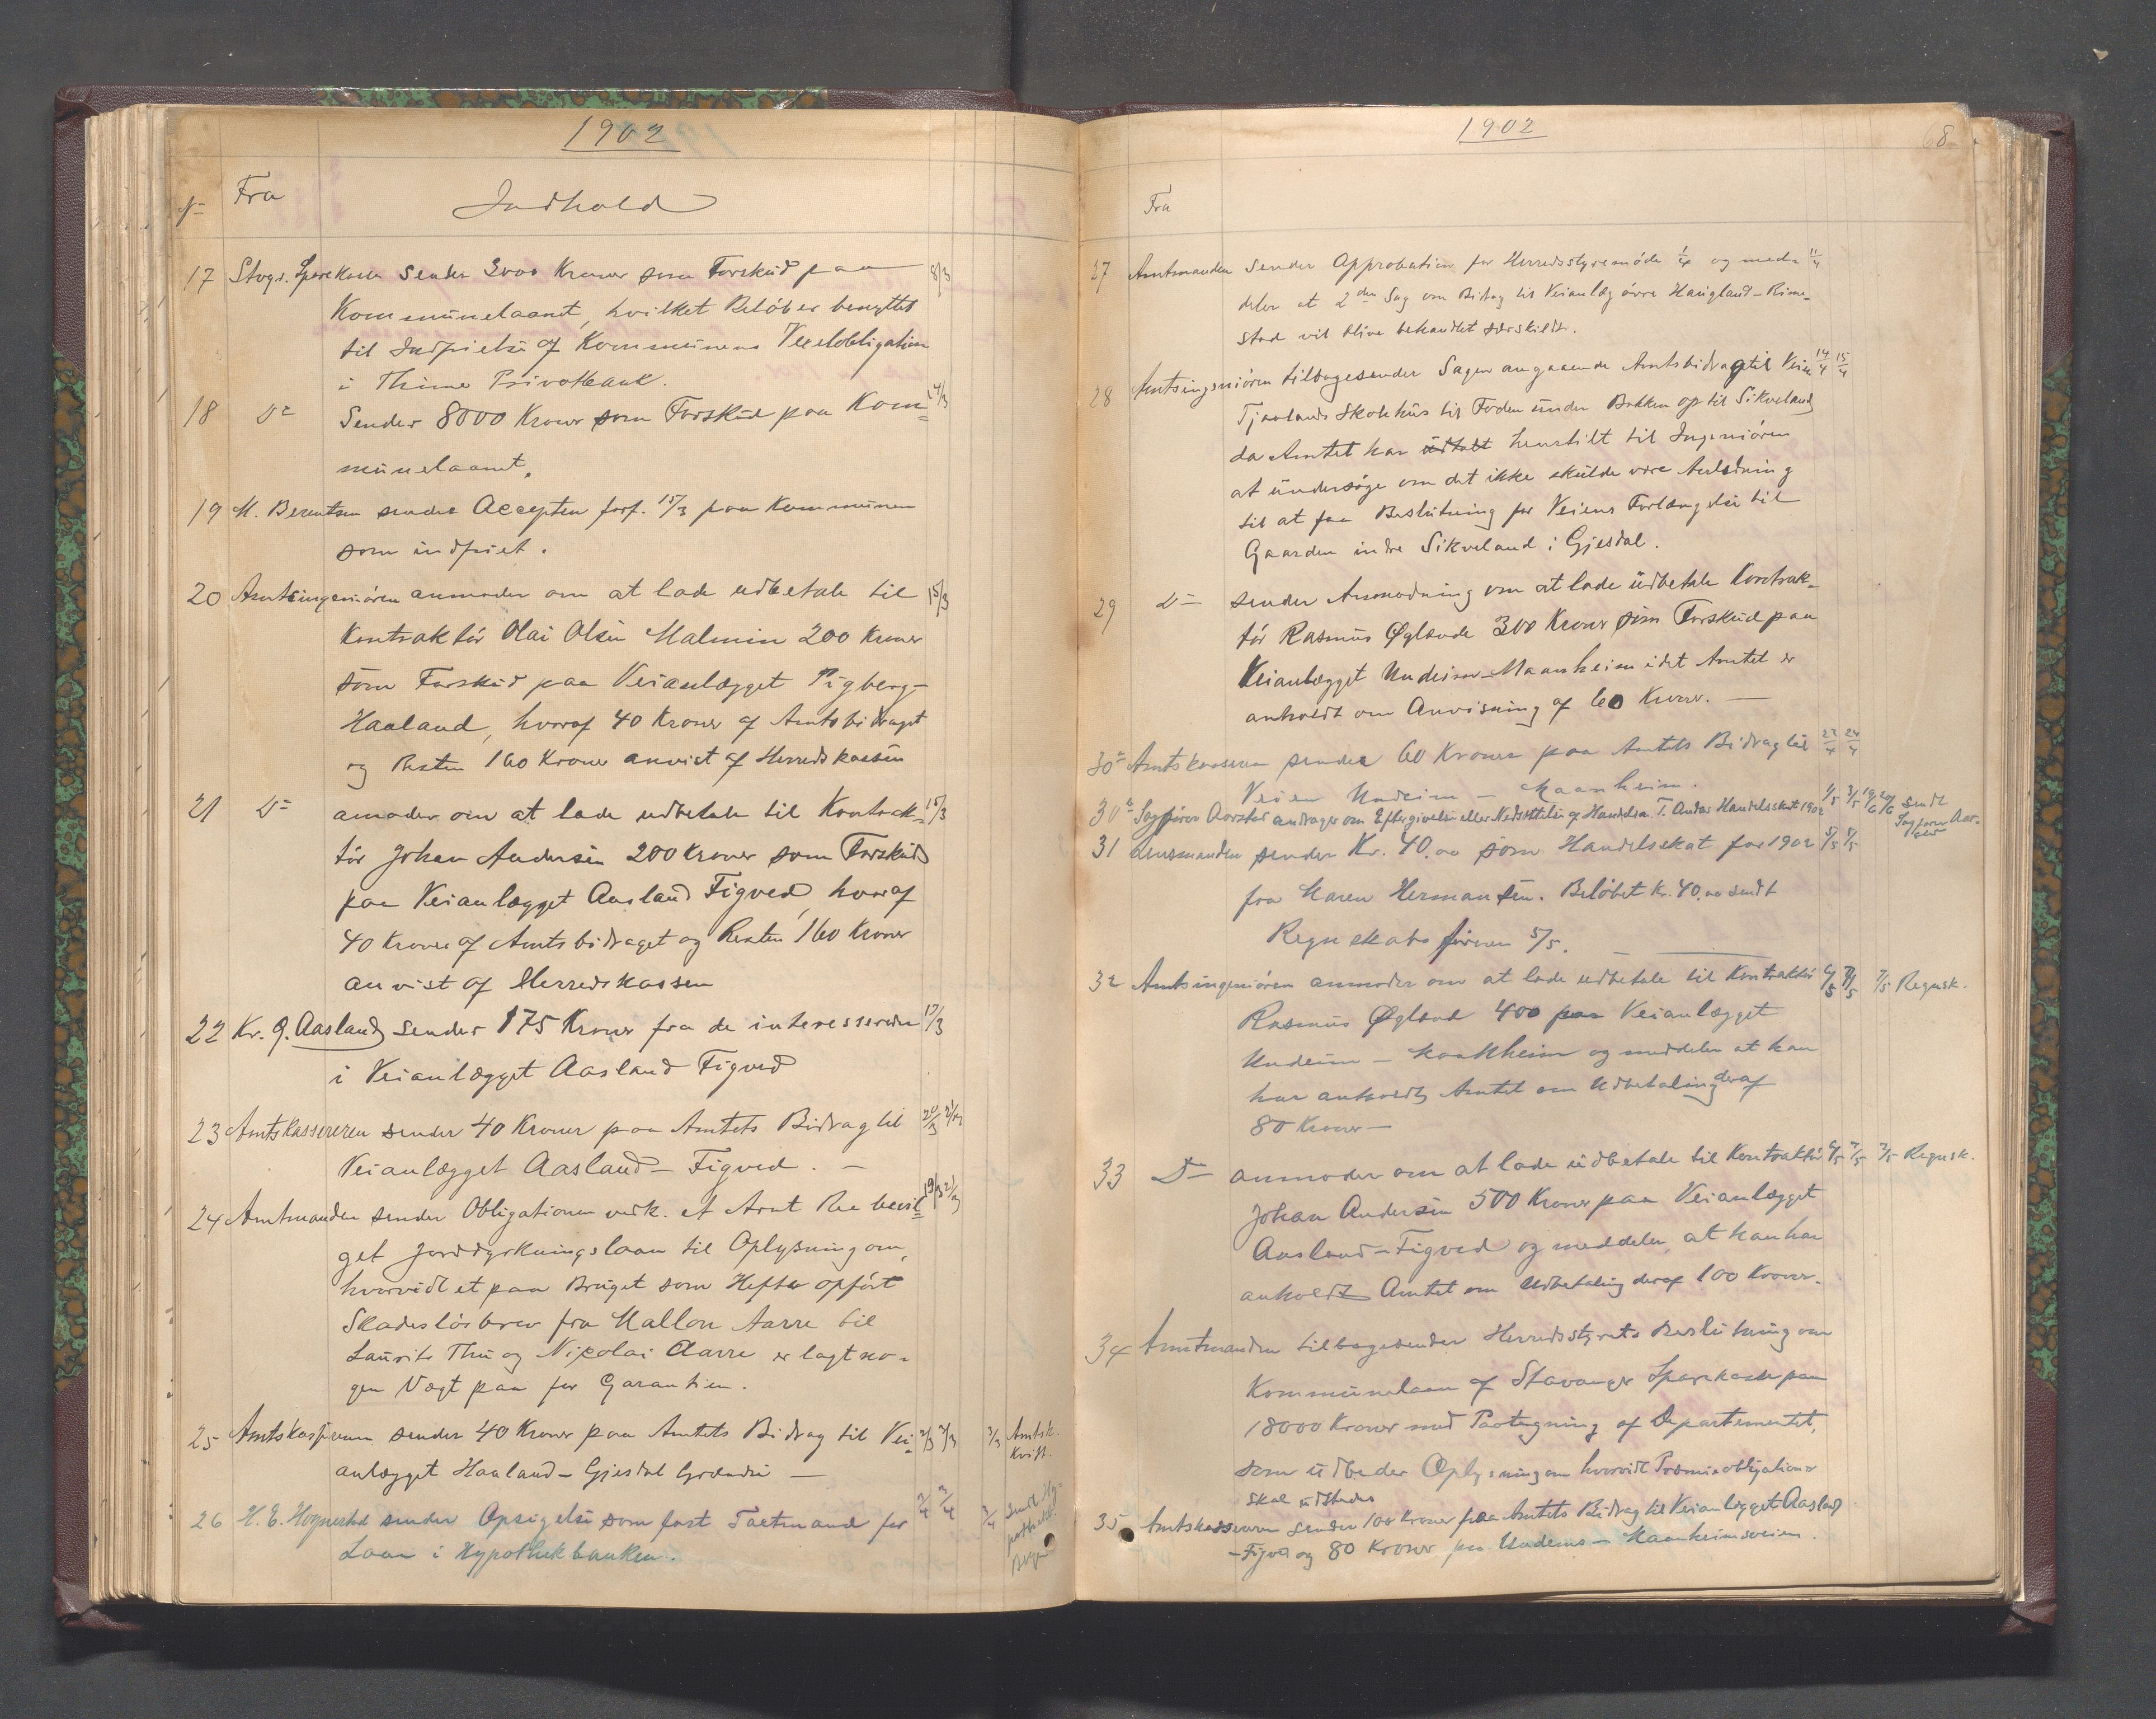 1902
№ Fra Indhold
17 Stvgr. Sparekasse sender 3000 Kroner som Forskud paa 8/3
Kommunelaanet, hvilket Beløb er benyttet
til Indfrielse af Kommunens Vexelobligation
i Thime Privatbank.
18 Do Sender 8000 Kroner som Forskud paa Kom=
munelaanet.
19 M. Berentsen sender Accepten forf. 15/3 paa Kommunen
som indfriet.
20 Amtsingeniøren anmoder om at lade udbetale til 15/3
Kontraktør Olai Olsen Malmin 200 Kroner
som Forskud paa Veianlægget Pigberg-
Haaland, hvoraf 40 Kroner af Amtsbidraget
og Resten 160 Kroner anvist af Herredskassen
21 Do amoder om at lade udbetale til Kontrak- 15/3
tør Johan Andersen 200 Kroner som Forskud
paa Veianlægget Aasland Figved, hvoraf
40 Kroner af Amtsbidraget og Resten 160 Kroner
anvist af Herredskassen
22 Kr. G. Aasland sender 175 Kroner fra de interesserede 17/3
i Veianlægget Aasland Figved
23 Amtskassereren sender 40 Kroner paa Amtets Bidrag til 20/3 21/3
Veianlægget Aasland - Figved.
24 Amtmanden sender Obligationen vedk. et Arnt Ree bevil= 19/3 21/3
get Jorddyrkningslaan til Oplysning om,
hvorvidt et paa Bruget som Hefte opført
Skadesløsbrev fra Mallon Aarre til
Laurits Thu og Nicolai Aarre er lagt no-
gen Vægt paa for Garantien.
25 Amtskassereren sender 40 Kroner paa Amtets Bidrag til Vei- Amtsk.
anlægget Haaland - Gjesdal Grændse — Kvitt.
26 H. E. Hognestad sender Opsigelse som fast Taxtmand for 2/4 3/4 3/4
Laan i Hypothekbanken.
1902
68
Fra
27 Amtmanden sender Approbation for Herredsstyremøde 1/4 og medde 11/4
deler at 2den Sag om Bidrag til Veianlæg øvre Haugland - Rime-
stad vil blive behandlet særskildt.
28 Amtsingeniøren tilbagesender Sagen angaaende Amtsbidrag til Veien 14/4 15/4
Tjaalands Skolehus til Foden under Bakken op til Sikveland,
da Amtet har udtalt henstilt til Ingeniøren
at undersøge om det ikke skulde være Anledning
til at faa Beslutning for Veiens Forlængelse til
Gaarden indre Sikveland i Gjesdal.
29 Do sender Anmodning om at lade udbetale Kontrak-
tør Rasmus Øglænde 300 Kroner som Forskud paa
Veianlægget Undeim-Maanheim idet Amtet er
anholdt om Anvisning af 60 Kroner. —
30a Amtskassereren sender 60 Kroner paa Amtets Bidrag til 23/4 24/4
Veien Undeim - Maanheim.
30b Sagfører Aarstad andrager om Eftergivelse eller Nedsættelse af Handelsm. T. Andas Handelsskat 1902 1/5 3/5 sendt
Sagfører Aar-
stad
31 Lensmanden sender Kr. 40.00 som Handelsskat for 1902 5/5 5/5
fra Maren Hermansen. Beløbet Kr. 40.00 sendt
Regnskabsføreren 5/5.
32 Amtsingeniøren anmoder om at lade udbetale til Kontraktør 6/5 7/5 7/5 Regnsk.
Rasmus Øglænd 400 paa Veianlægget
Undeim - Maanheim og meddeler at han
har anholdt Amtet om Udbetaling deraf
80 Kroner —
33 Do anmoder om at lade udbetale til Kontraktør 6/5 7/5 7/5 Regnsk.
Johan Andersen 500 Kroner paa Veianlægget
Aasland - Figved og meddeler, at han har
anholdt Amtet om Udbetaling deraf 100 Kroner.
34 Amtmanden tilbagesender Herredsstyrets Beslutning om
Kommunelaan af Stavanger Sparekasse paa
18000 Kroner med Paategning af Departementet,
som udbeder Oplysning om hvorvidt Præmieobligationer
skal udstedes
35 Amtskassereren sender 100 Kroner paa Amtets Bidrag til Veianlægget Aasland
- Figved og 80 Kroner paa Undeims - Maanheimsveien.